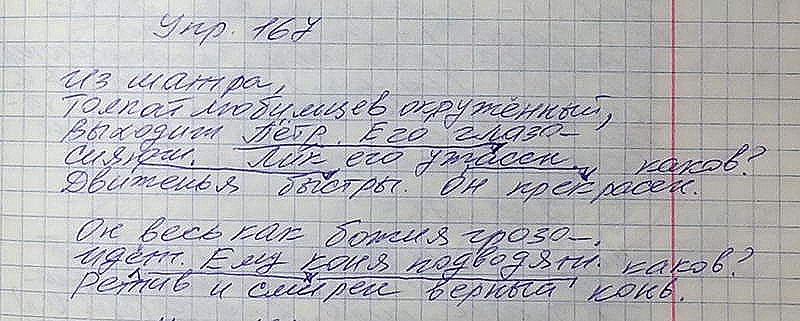 Упр. 167
Из шатра,
Толпой любимцев окружённый,
Выходит Пётр. Его глаза –
Сияют. Лик его ужасен. каков?
Движенья быстры. Он прекрасен.
Он весь как божия гроза –.
Идёт. Ему коня подводят. каков?
Ретив и смирен верный конь.